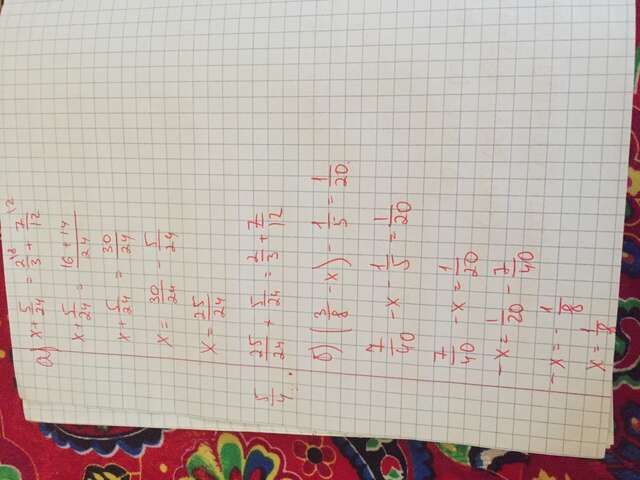 а) x + 5/24 = 2/3 \8 + 7/12 \2
x + 5/24 = 16 + 14/24
x + 5/24 = 30/24
x = 30/24 - 5/24
x = 25/24
5/4 25/24 + 5/24 = 2/3 + 7/12
б) (3/8 - x) - 1/5 = 1/20
7/40 - x - 1/5 = 1/20
7/40 - x = 1/20
-x = 1/20 - 7/40
-x = - 1/8
x = 1/8